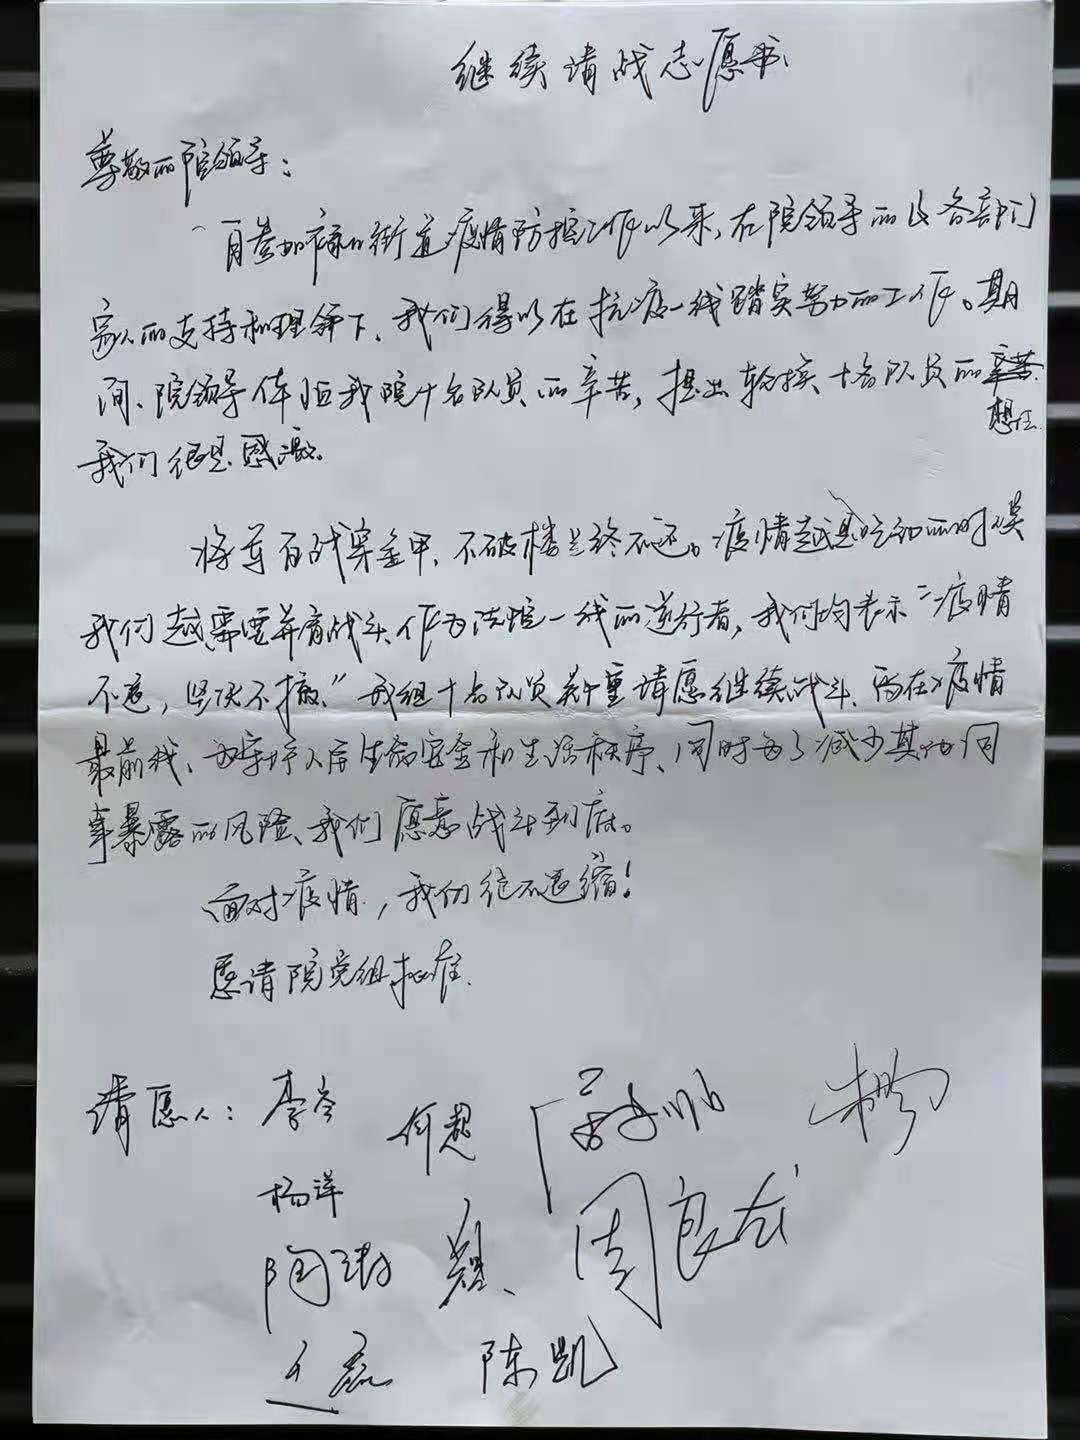 继续请战志愿书
尊敬的院领导：
自参加街道疫情防控工作以来，在院领导的及各部门
家人的支持和理解下，我们得以在抗疫一线踏实努力的工作。期
间、院领导体恤我院十名队员的辛苦，提出轮换十名队员的
想法
我们很是感激。
将军百战穿金甲，不破楼兰终不还。疫情越是吃劲的时候
我们越需要并肩战斗、作为法院一线的逆行者，我们均表示“疫情
不退，坚决不撤”我组十名队员郑重请愿继续战斗、站在疫情
最前线、为守护人民生命安全和生活秩序、同时为了减少其他同
事暴露的风险、我们愿意战斗到底。
面对疫情，我们绝不退缩！
恳请院党组批准
请愿人：李 何超
杨洋
陶 周良
王磊 陈凯